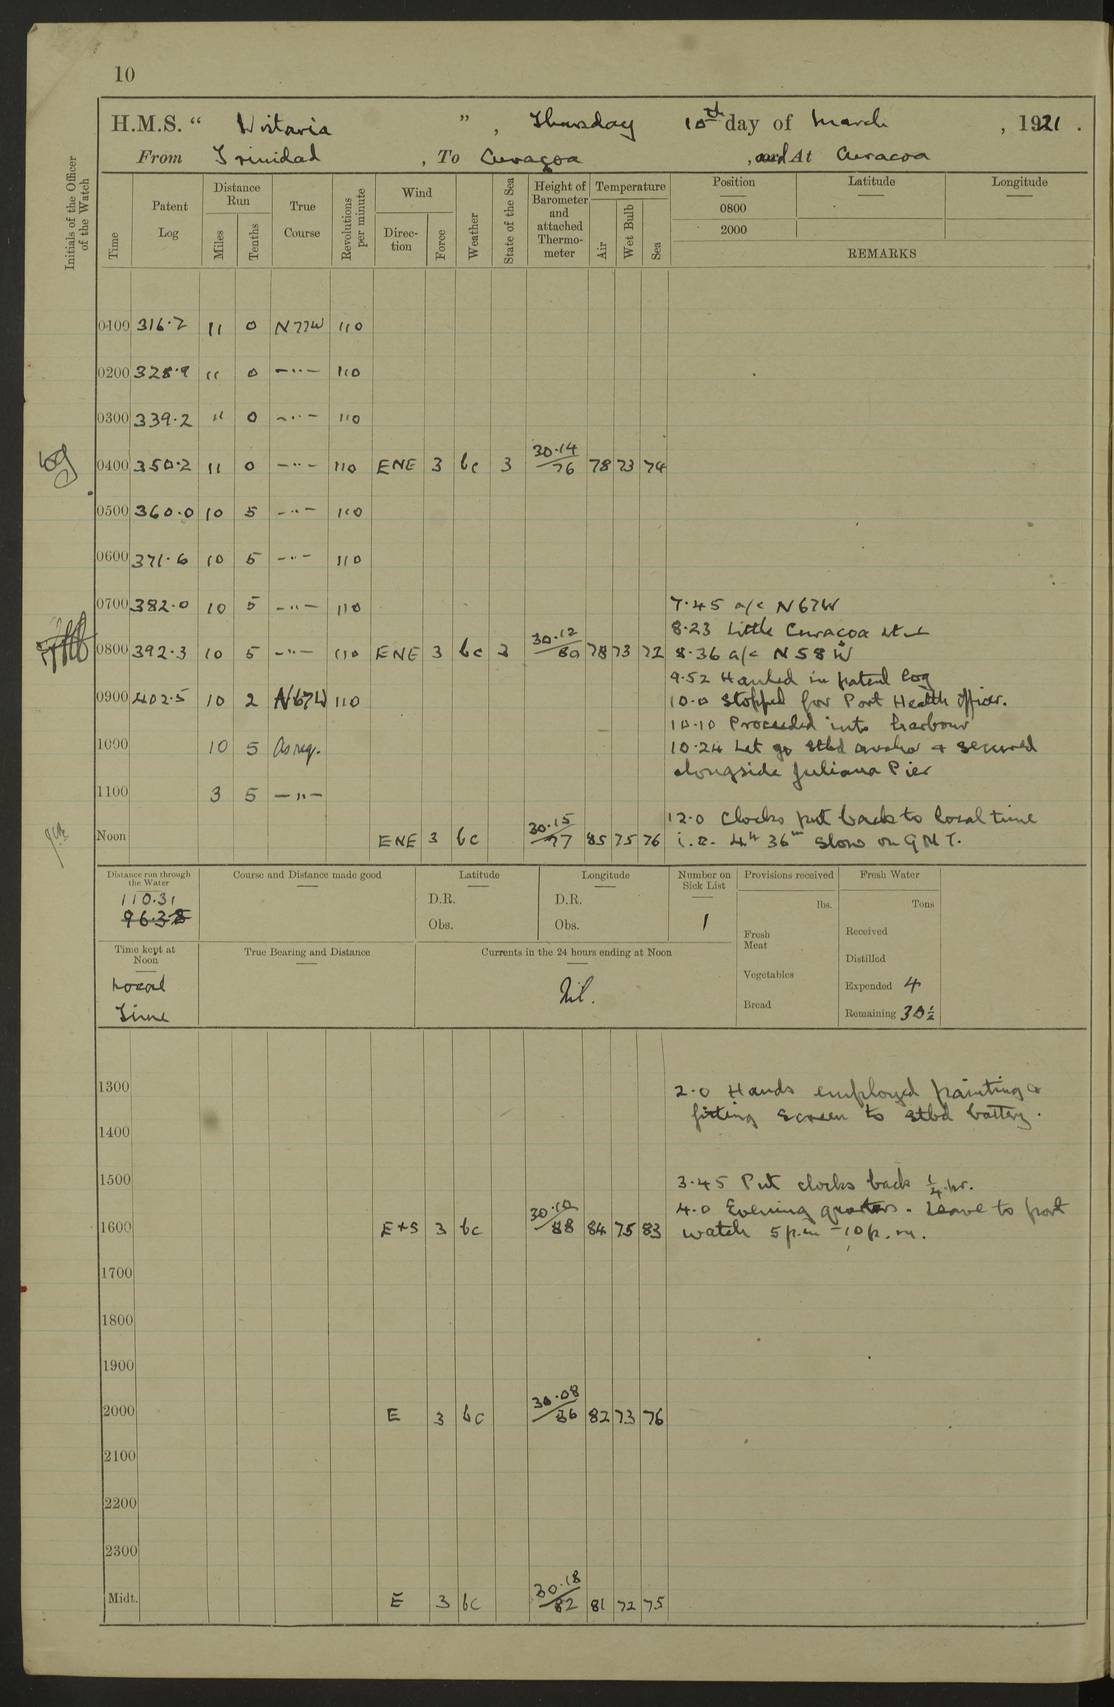 10
H.M.S. “ Wistaria ” , Thursday 10th day of March , 1921 .
From Trinidad , To Curaçoa , and At Curacoa
Initials of the Officer of the Watch
Time
Patent Log
Distance Run
Miles
Tenths
True Course
Revolutions per minute
Wind
Direc-tion
Force
Weather
State of the Sea
Height of Barometer and attached Thermo-meter
Temperature
Air
Wet Bulb
Sea
Position Latitude Longitude
0800
2000
REMARKS
0100 316.2 11 0 N77W 110
0200 328.9 11 0 -"- 110
0300 339.2 11 0 -"- 110
0400 350.2 11 0 -"- 110 ENE 3 bc 3 30.14/76 78 73 74
0500 360.0 10 5 -"- 110
0600 371.6 10 5 -"- 110
0700 382.0 10 5 -"- 110
7.45 a/c N67W
8.23 Little Curacoa Lt
0800 392.3 10 5 -"- 110 ENE 3 bc 3 30.12/80 78 73 72
8.36 a/c N58W
9.52 Hauled in patent log
0900 402.5 10 2 N67W 110
10.0 Stopped for Port Health Officer.
10.10 Proceeded into harbour
1000 10 5 As req.
10.24 Let go stbd anchor & secured
alongside Juliana Pier
1100 3 5 -"-
12.0 Clocks put back to local time
Noon ENE 3 bc 30.15/77 85 75 76
i.e. 4h 36m slow on GMT.
Distance run through the Water
110.31
96.38
Course and Distance made good
Latitude
D.R.
Obs.
Longitude
D.R.
Obs.
Number on Sick List
1
Provisions received
lbs.
Fresh Meat
Vegetables
Bread
Fresh Water
Tons
Received
Distilled
Expended 4
Remaining 30½
Time kept at Noon
Local
Time
True Bearing and Distance
Currents in the 24 hours ending at Noon
Nil.
1300
2.0 Hands employed painting &
fitting screen to stbd battery.
1400
1500
3.45 Put clocks back ¼ hr.
4.0 Evening quarters. Leave to port
1600 E+S 3 bc 30.10/88 84 75 83
watch 5 p.m - 10 p.m.
1700
1800
1900
2000 E 3 bc 30.08/86 82 73 76
2100
2200
2300
Midt. E 3 bc 30.18/82 81 72 75